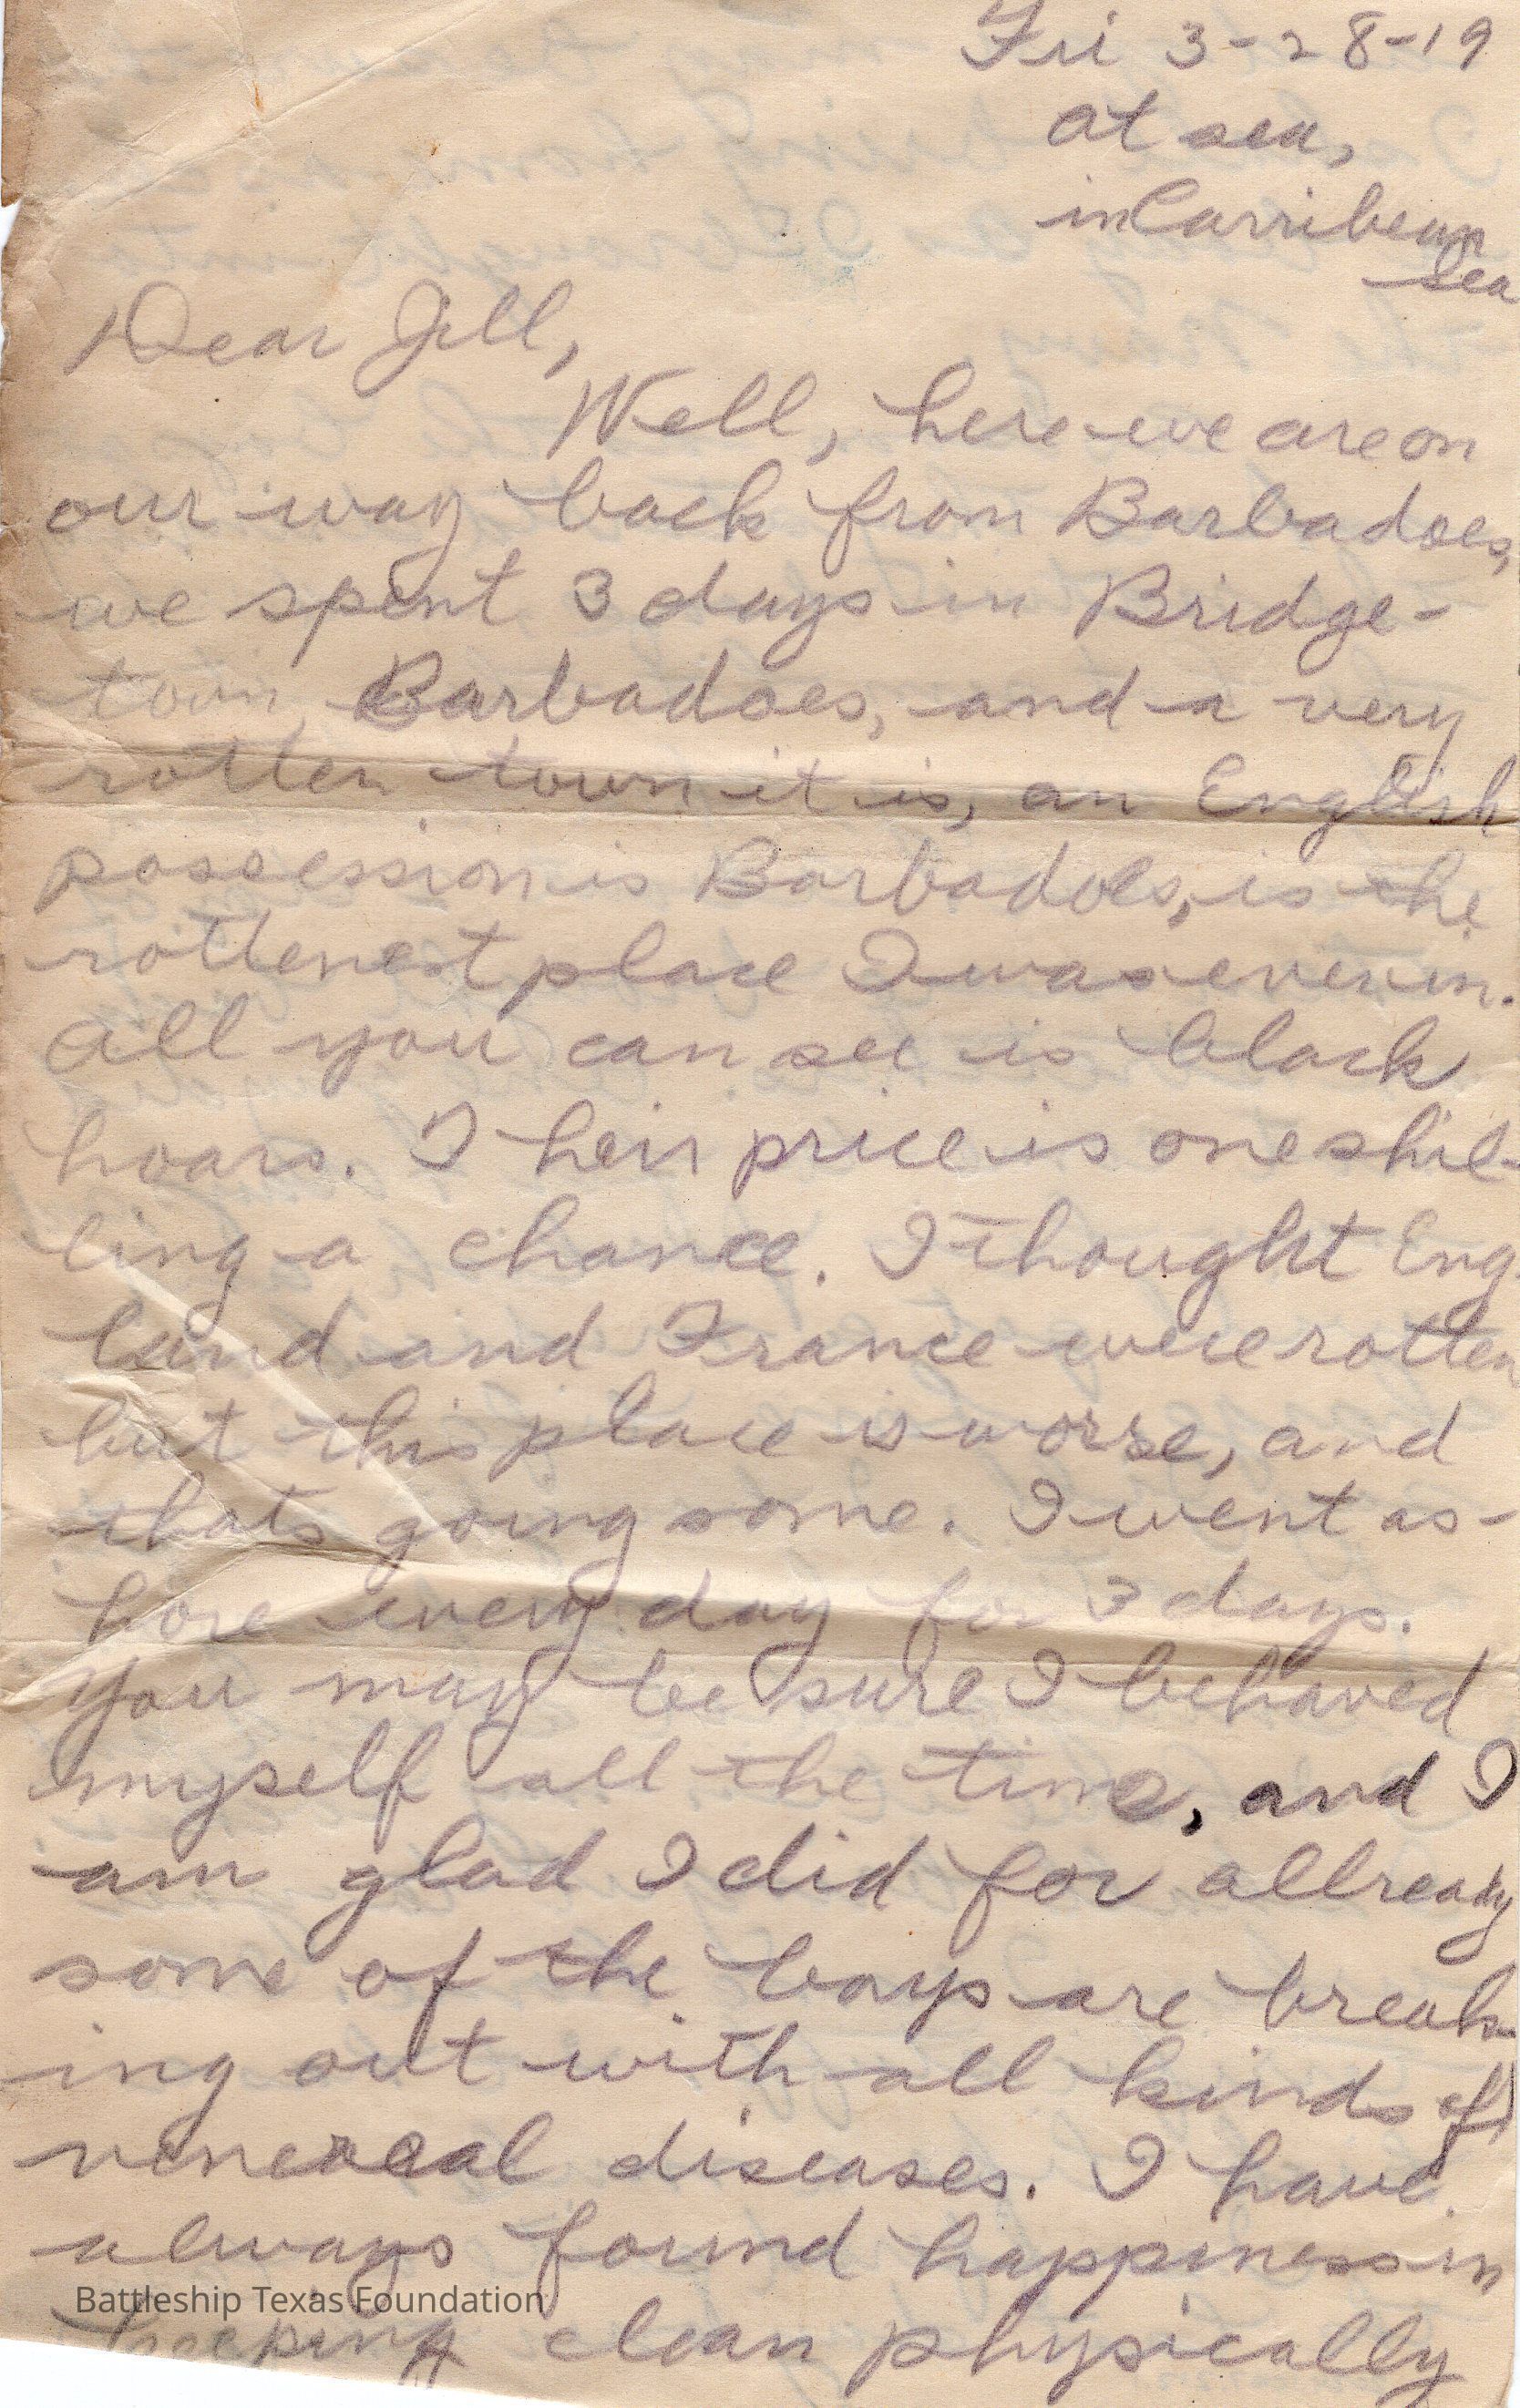 Fri 3-28-19
At sea,
in Carribean
Sea
Dear Jill,
Well, here we are on
our way back from Barbadoes,
we spent 3 days in Bridge-
town, Barbadoes, and a very
rotten town it is, an English
possession is Barbadoes, is the
rottenest place I was ever in.
All you can see is black
hoars. Their price is one shil-
ling a chance. I thought Eng-
land and France were rotten
but this place is worse, and
thats going some. I went as-
hore every day for 3 days.
You may be sure I behaved
myself all the time, and I
am glad I did for allready
some of the boys are break-
ing out with all kinds of
venereal diseases. I have
always found happiness in
keeping clean physically
Battleship Texas Foundation